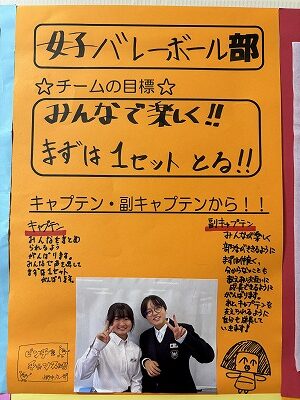 女子バレーボール部
☆チームの目標☆
みんなで楽しく!!
まずは1セットとる!!
キャプテン・副キャプテンから!!
キャプテン
みんなをまとめ
られるよう
がんばります。
みんなで声を出して
まずは1セット
がんばります。
副キャプテン
みんなが楽しく
部活ができるように
まずは仲良く、
分からないことも
教えあい大会に
成長できるように
がんばります。
キャプテンを
支えられるように
自分も成長して
いきます!
ピンチを
チャンスに!!